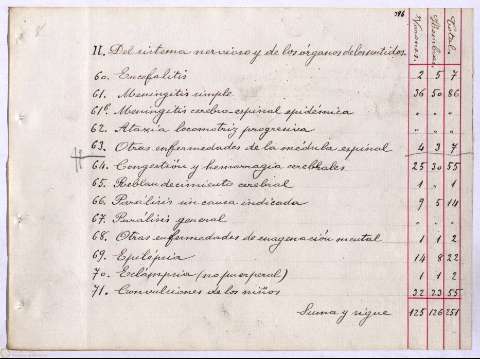 196
Varones. Hembras. Total.
II. Del sistema nervioso y de los órganos de los sentidos.
60. Encefalitis 2 5 7
61. Meningitis simple 36 50 86
61b. Meningitis cerebro-espinal epidémica " " "
62. Ataxia locomotriz progresiva " " "
63. Otras enfermedades de la médula espinal 4 3 7
64. Congestión y hemorragia cerebrales 25 30 55
65. Reblandecimiento cerebral 1 " 1
66. Parálisis sin causa indicada 9 5 14
67. Parálisis general " " "
68. Otras enfermedades de enagenación mental 1 1 2
69. Epilépsia 14 8 22
70. Eclámpsia (no puerperal) 1 1 2
71. Convulciones de los niños 32 23 55
Suma y sigue 125 126 251